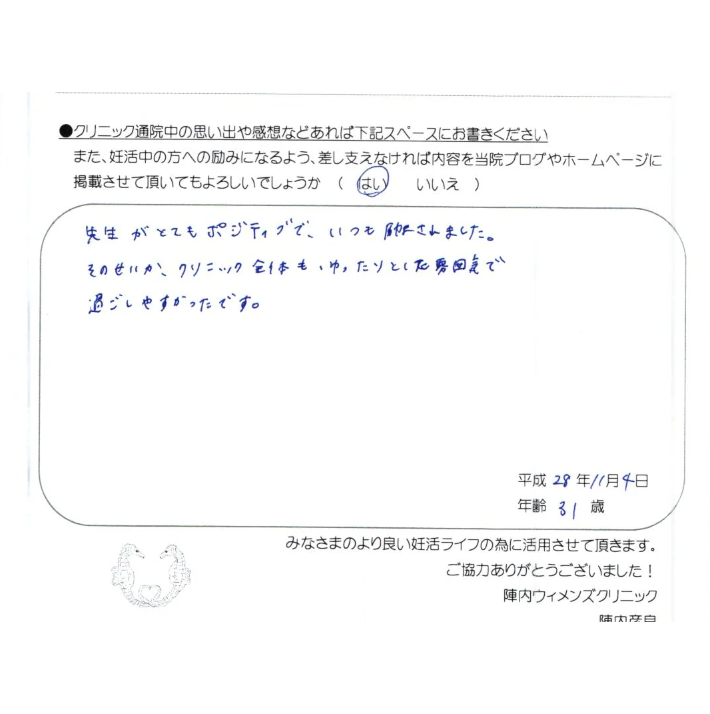 ●クリニック通院中の思い出や感想などあれば下記スペースにお書きください
また、妊活中の方への励みになるよう、差し支えなければ内容を当院ブログやホームページに
掲載させて頂いてもよろしいでしょうか （ はい いいえ ）
先生がとてもポジティブで、いつも励まされました。
そのせいか、クリニック全体もゆったりとした雰囲気で
過ごしやすかったです。
平成 28 年 11 月 4 日
年齢 31 歳
みなさまのより良い妊活ライフの為に活用させて頂きます。
ご協力ありがとうございました！
陣内ウィメンズクリニック
陣内彦良